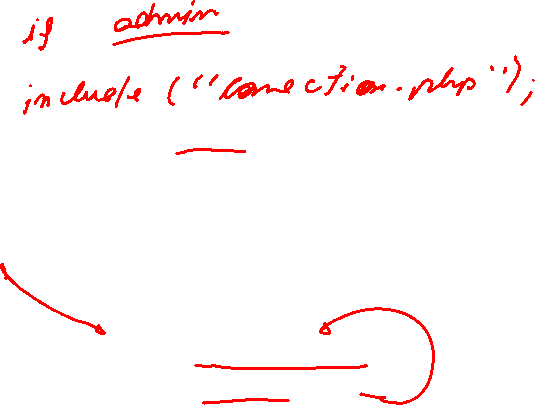 if admin
include ("conection.php");